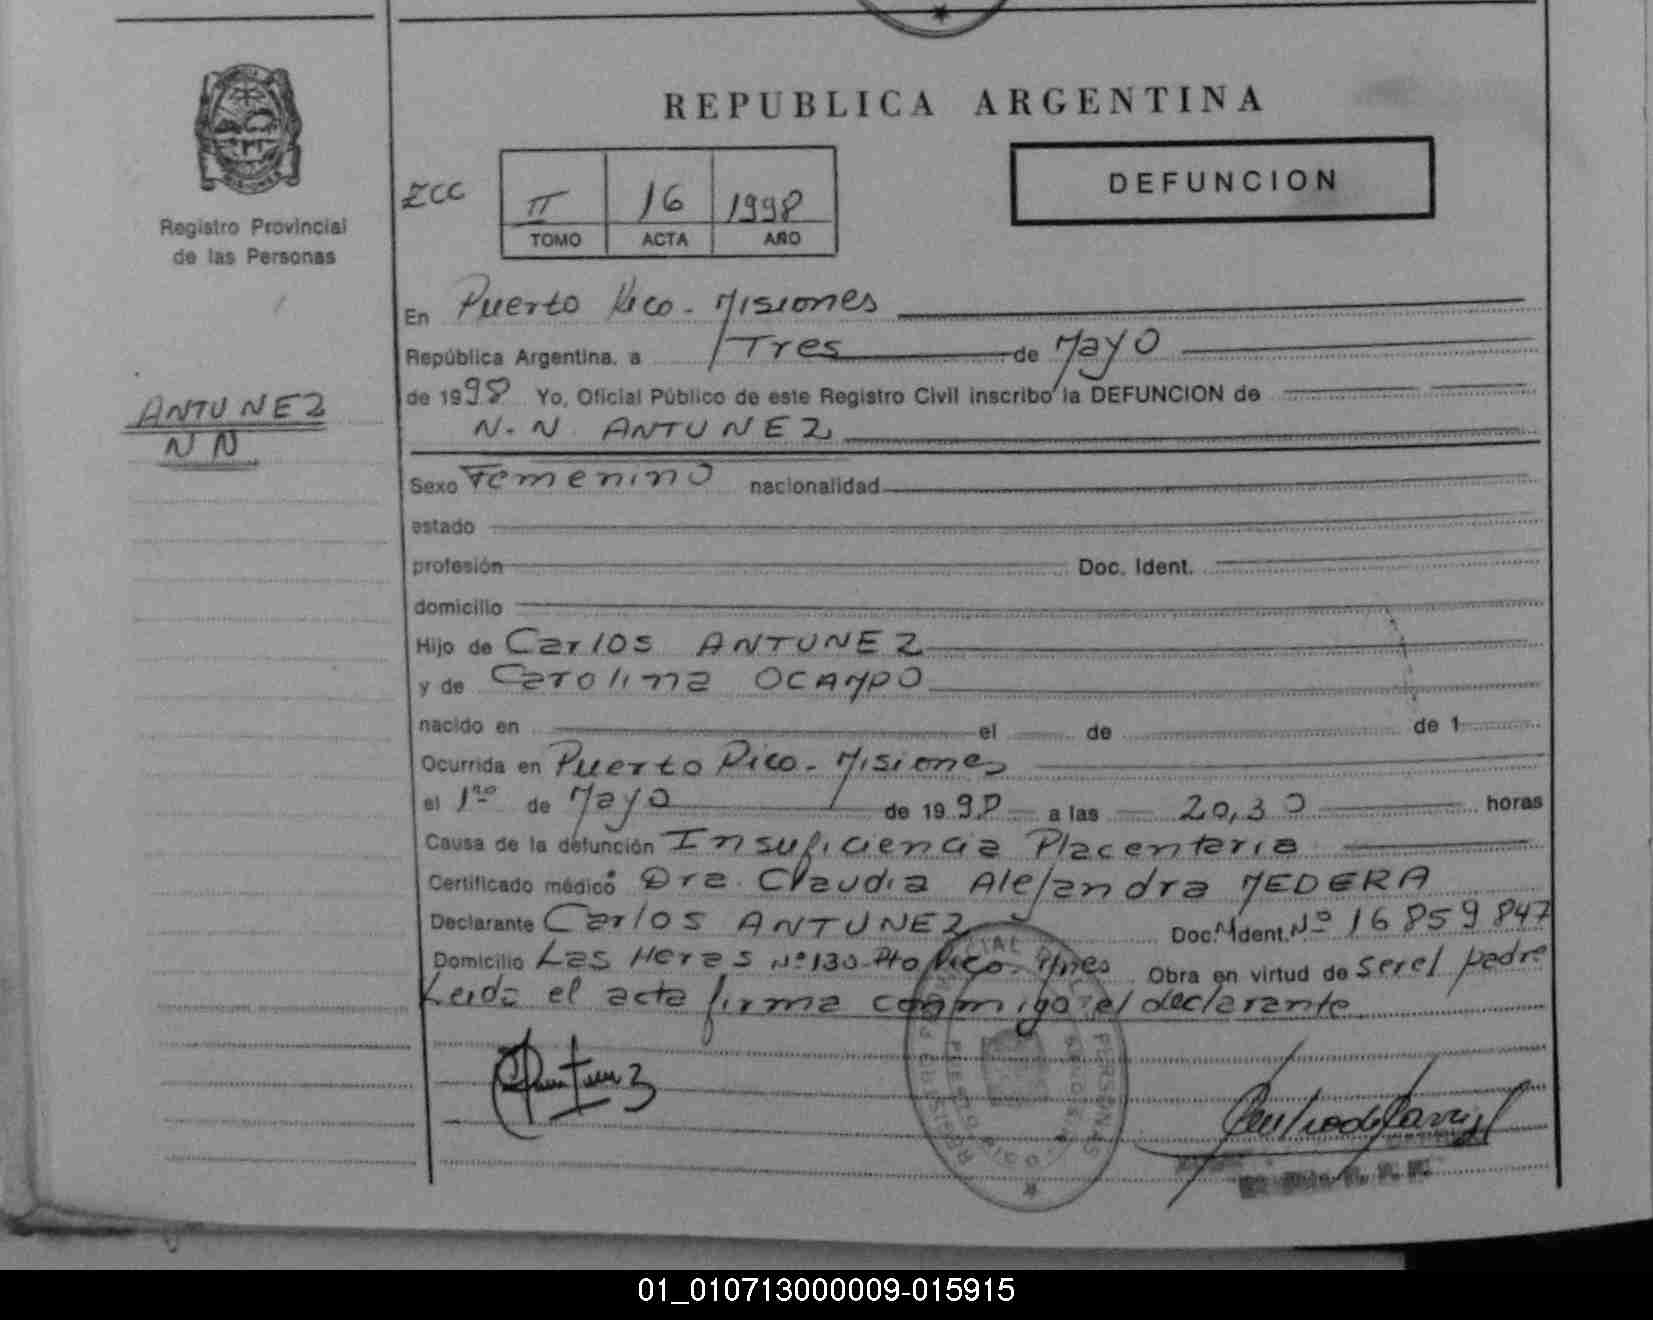 REPUBLICA ARGENTINA
DEFUNCION
Registro Provincial
de las Personas
ZCC
II 16 1998
TOMO ACTA AÑO
En Puerto Rico - Misiones
República Argentina, a Tres de Mayo
de 1998 Yo, Oficial Público de este Registro Civil inscribo la DEFUNCION de
N. N ANTUNEZ
ANTUNEZ
N N
Sexo Femenino nacionalidad
estado
profesión Doc. Ident.
domicilio
Hijo de Carlos ANTUNEZ
y de Carolina OCAMPO
nacido en el de de 1
Ocurrida en Puerto Rico - Misiones
el 1ro de Mayo de 1998 a las 20,30 horas
Causa de la defunción Insuficiencia Placentaria
Certificado médico Dra. Claudia Alejandra MEDERA
Declarante Carlos ANTUNEZ Doc. Ident. Nº 16 859 847
Domicilio Las Heras Nº 130 Pto Rico - Mnes Obra en virtud de ser el padre
Leida el acta firma conmigo el declarante
01_010713000009-015915